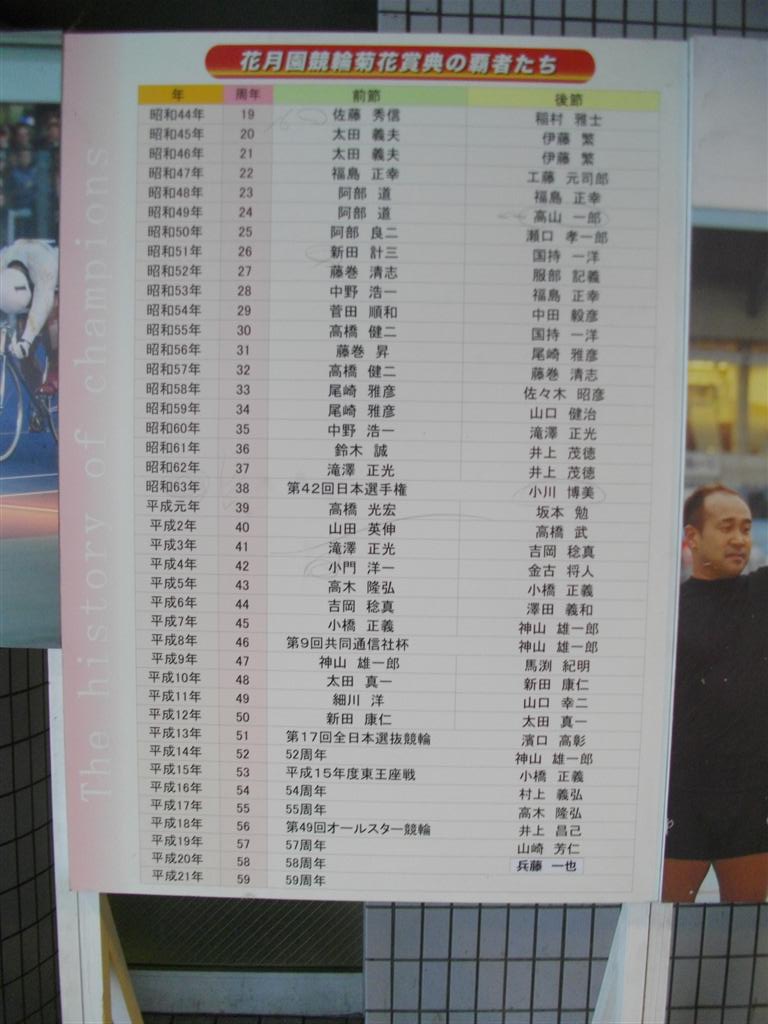 花月園競輪菊花賞典の覇者たち
The history of champions
年 周年 前節 後節
昭和44年 19 佐藤 秀信 稲村 雅士
昭和45年 20 太田 義夫 伊藤 繁
昭和46年 21 太田 義夫 伊藤 繁
昭和47年 22 福島 正幸 工藤 元司郎
昭和48年 23 阿部 道 福島 正幸
昭和49年 24 阿部 道 高山 一郎
昭和50年 25 阿部 良二 瀬口 孝一郎
昭和51年 26 新田 計三 国持 一洋
昭和52年 27 藤巻 清志 服部 記義
昭和53年 28 中野 浩一 福島 正幸
昭和54年 29 菅田 順和 中田 毅彦
昭和55年 30 高橋 健二 国持 一洋
昭和56年 31 藤巻 昇 尾崎 雅彦
昭和57年 32 高橋 健二 藤巻 清志
昭和58年 33 尾崎 雅彦 佐々木 昭彦
昭和59年 34 尾崎 雅彦 山口 健治
昭和60年 35 中野 浩一 滝澤 正光
昭和61年 36 鈴木 誠 井上 茂徳
昭和62年 37 滝澤 正光 井上 茂徳
昭和63年 38 第42回日本選手権 小川 博美
平成元年 39 高橋 光宏 坂本 勉
平成2年 40 山田 英伸 高橋 武
平成3年 41 滝澤 正光 吉岡 稔真
平成4年 42 小門 洋一 金古 将人
平成5年 43 高木 隆弘 小橋 正義
平成6年 44 吉岡 稔真 澤田 義和
平成7年 45 小橋 正義 神山 雄一郎
平成8年 46 第9回共同通信社杯 神山 雄一郎
平成9年 47 神山 雄一郎 馬渕 紀明
平成10年 48 太田 真一 新田 康仁
平成11年 49 細川 洋 山口 幸二
平成12年 50 新田 康仁 太田 真一
平成13年 51 第17回全日本選抜競輪 濱口 高彰
平成14年 52 52周年 神山 雄一郎
平成15年 53 平成15年度東王座戦 小橋 正義
平成16年 54 54周年 村上 義弘
平成17年 55 55周年 高木 隆弘
平成18年 56 第49回オールスター競輪 井上 昌己
平成19年 57 57周年 山崎 芳仁
平成20年 58 58周年 兵藤 一也
平成21年 59 59周年